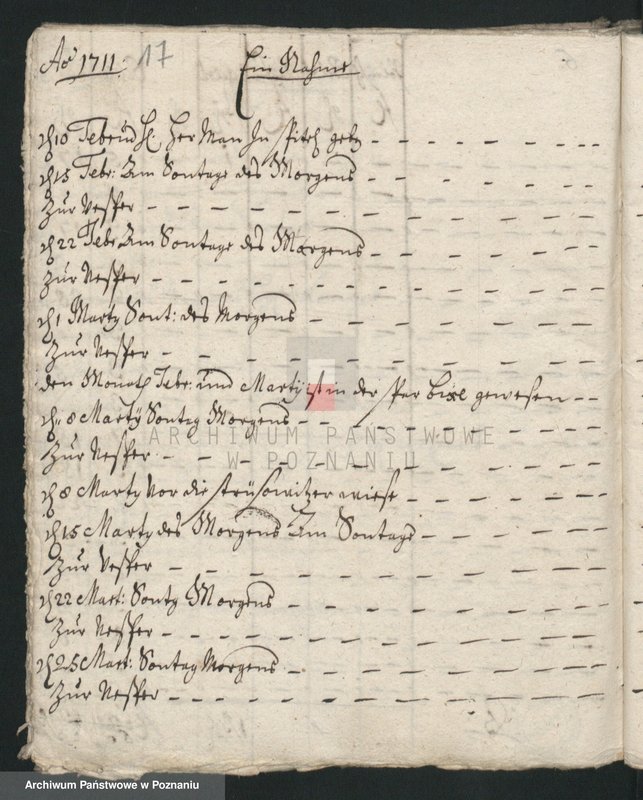 Ao 1711: 17
Ein Nahme
d 10 Febr und H. Herman In
d 15 Febr: Am Sontage des Morgens
Zur Vesper
d 22 Febr Am Sontage des Morgens
Zur Vesper
d 1 Marty Sont: des Morgens
Zur Vesper
den Monath Febr: und Marty ist in der Spar bixe gewesen
d. 8 Marty Sontg Morgens
ARCHIWUM PAŃSTWOWE
W POZNANIU
Zur Vesper
d 8 Marty Vor die wiese
d 15 Marty des Morgens Am Sontage
Zur Vesper
d 22 Mart: Sontg Morgens
Zur Vesper
d 25 Mart: Sontag Morgens
Zur Vesper
Archiwum Państwowe w Poznaniu